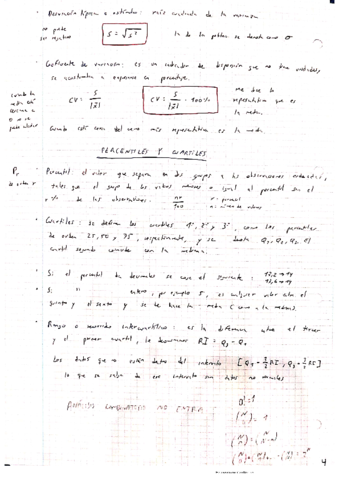 Desviación típica o estándar: raíz cuadrada de la varianza
no puede
ser negativa
S = √s²
la de la población se denota como σ
Coeficiente de variación: es un medidor de dispersión que no tiene unidades,
se acostumbra a expresar en porcentaje.
cuando la
media está
cercana a
0 no se
puede utilizar
CV = S / |x̄|
CV = S / |x̄| · 100%
representativa que es
la media.
Cuanto esté cerca del cero más representativa es la media.
PERCENTILES Y CUARTILES
Pr
Percentil: el valor que separa en dos grupos a las observaciones ordenadas,
tales que el grupo de los valores menores o igual al percentil sea el
r % de las observaciones.
nr / 100
r = percentil
n = número de valores
Cuartiles: se definen los cuartiles 1º, 2º y 3º, como los percentiles
de orden 25, 50 y 75, respectivamente, y se denota Q₁, Q₂, Q₃. El
cuartil segundo coincide con la mediana.
Si el percentil da decimales se coge el siguiente:
Si " " entero, por ejemplo 5, es cualquier valor entre el
quinto y el sexto y se le hace la media (como la mediana).
Rango o recorrido intercuartílico: es la diferencia entre el tercer
y el primer cuartil, lo denominan RI = Q₃ - Q₁
Los datos que no estén dentro del intervalo [Q₁ - 3/2 RI, Q₃ + 3/2 RI]
lo que se salga de ese intervalo son datos no usuales
ANÁLISIS COMBINATORIO NO ENTRA
0! = 1
4